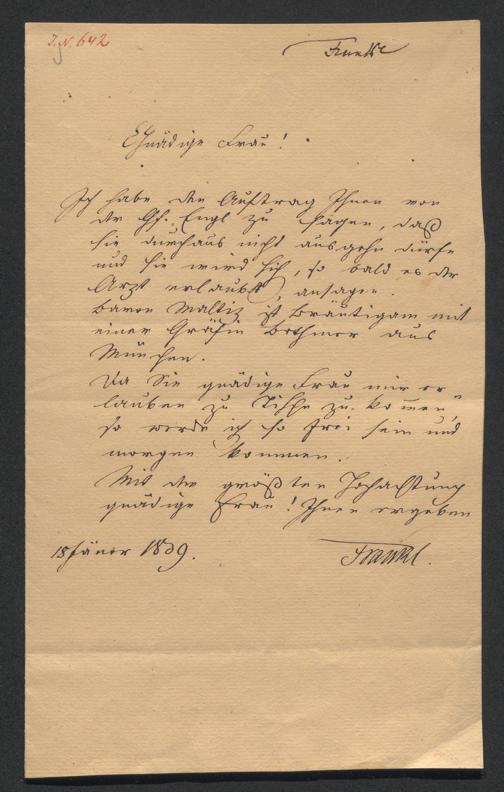 I.N. 642
Frankl
Gnädige Frau!
Ich habe den Auftrag Ihnen von
der Gf. Engl zu sagen, daß
sie durchaus nicht ausgehn dürfe
und sie wird sich, so bald es der
Arzt erlaubt, ansagen.
Baron Maltiz ist Bräutigam mit
einer Gräfin Bothmer aus
München.
Da Sie gnädige Frau mir er-
lauben zu Tische zu kommen,
so werde ich so frei sein und
morgen kommen.
Mit der größten Hochachtung
gnädige Frau! Ihnen ergeben
18 Jäner 1839.
Frankl.